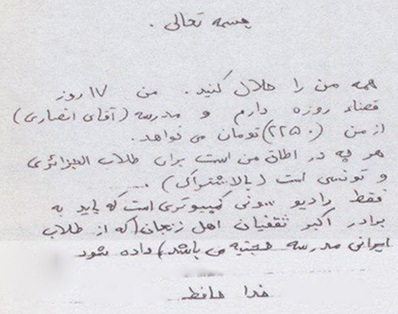 بسمه تعالی .
همه من را حلال کنید . من ۱۷ روز
قضاء روزه دارم و مدرسه (آقای انصاری)
از من (۲۲۵۰) تومان می خواهد .
هر چه در اطاق من است برای طلاب الجزائری
و تونسی است (بالاشتراک) .
فقط رادیو سونی کامپیوتری است که باید به
برادر اکبر ثقفیان اهل زنجان (که از طلاب
ایرانی مدرسه حجتیه می باشد) داده شود
خدا حافظ